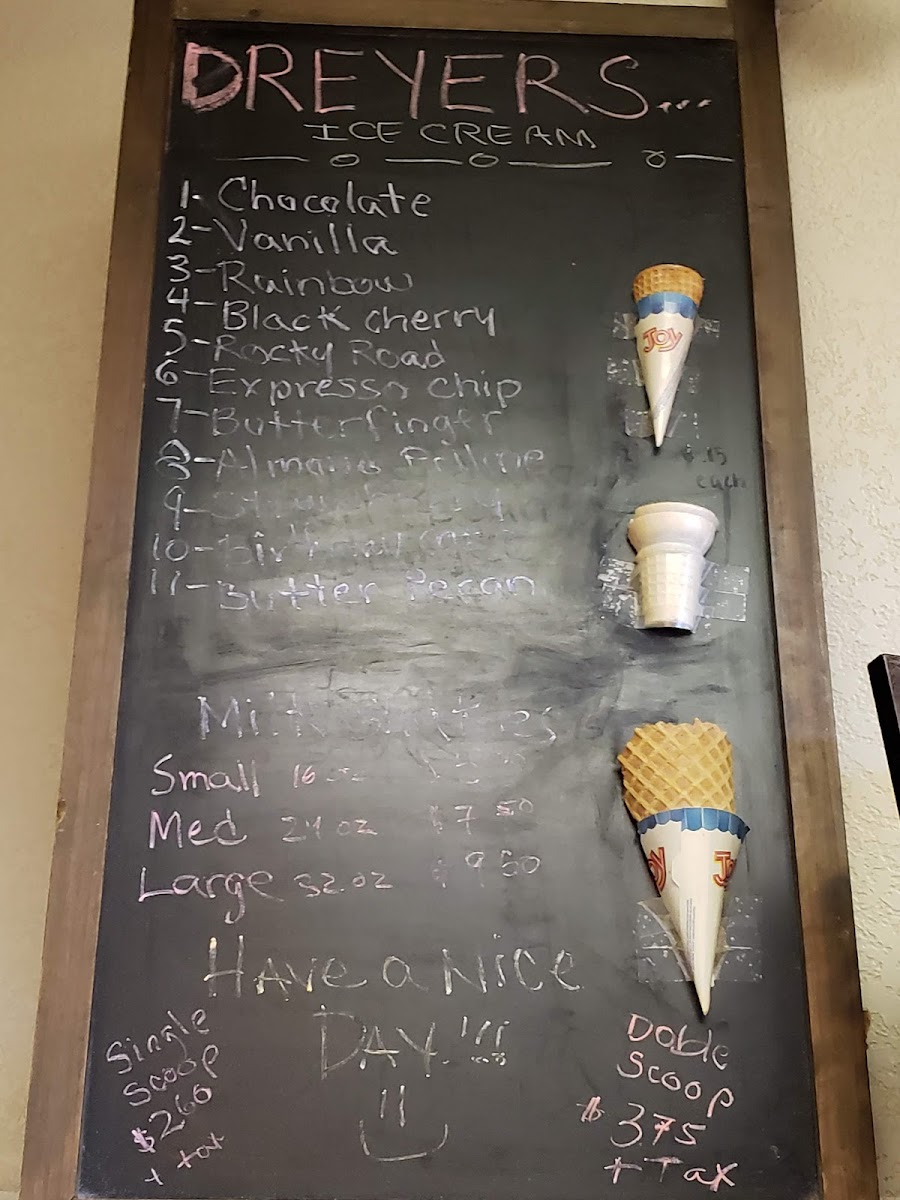 DREYERS...
ICE CREAM
1- Chocolate
2- Vanilla
3- Rainbow
4- Black cherry
5- Rocky Road
6- Expresso chip
7- Butterfinger
8- Almond
9-
10- Birthday
11- Butter Pecan
Milk Shakes
Small 16 oz
Med 24 oz $7 50
Large 32.oz $9 50
Have a Nice
Day!!!
Single
Scoop
$260
+ tax
Doble
Scoop
$3.75
+ Tax
Joy
$.15
each